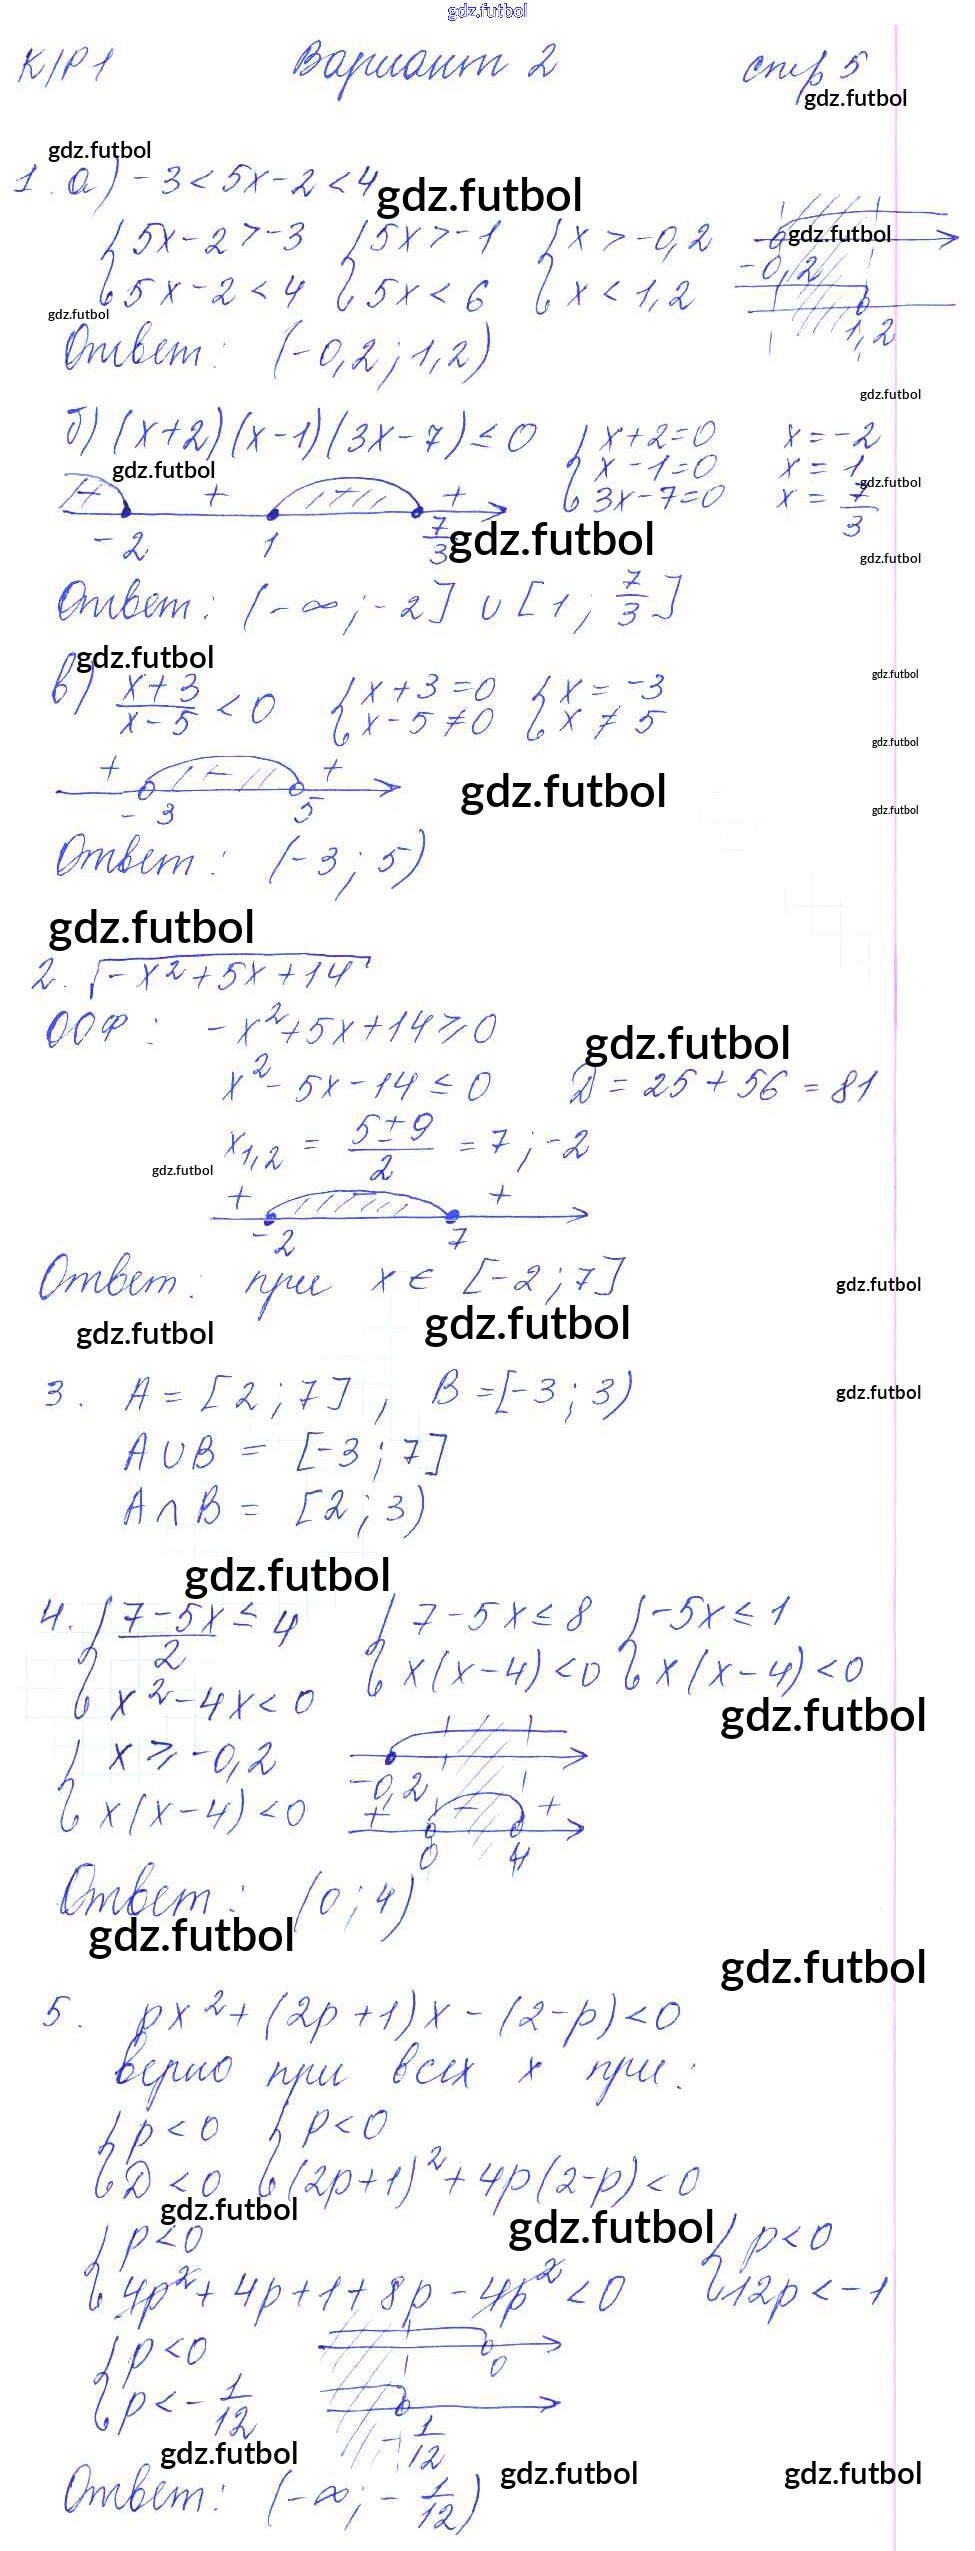 gdz.futbol
К/Р1 Вариант 2 стр 5
gdz.futbol
gdz.futbol
1. а) -3 < 5x - 2 < 4
gdz.futbol
{ 5x - 2 > -3 { 5x > -1 { x > -0,2
5x - 2 < 4 5x < 6 x < 1,2
gdz.futbol
-0,2
1,2
gdz.futbol
Ответ: (-0,2; 1,2)
gdz.futbol
б) (x+2)(x-1)(3x-7) ≤ 0 { x+2=0 x = -2
x-1=0 x = 1
3x-7=0 x = 7/3
gdz.futbol
gdz.futbol
+ + + +
-2 1 7/3
gdz.futbol
gdz.futbol
Ответ: (-∞; -2] ∪ [1; 7/3]
gdz.futbol
gdz.futbol
в) (x+3)/(x-5) < 0 { x+3=0 { x = -3
x-5≠0 x ≠ 5
gdz.futbol
+ - +
-3 5
gdz.futbol
gdz.futbol
Ответ: (-3; 5)
gdz.futbol
2. √(-x²+5x+14)
ООФ: -x²+5x+14 ≥ 0
gdz.futbol
x² - 5x - 14 ≤ 0 D = 25 + 56 = 81
x₁,₂ = (5±9)/2 = 7; -2
gdz.futbol
+ +
-2 7
Ответ: при x ∈ [-2; 7]
gdz.futbol
gdz.futbol
gdz.futbol
3. A = [2; 7], B = [-3; 3)
gdz.futbol
A∪B = [-3; 7]
A∩B = [2; 3)
gdz.futbol
4. { (7-5x)/2 ≤ 4 { 7-5x ≤ 8 { -5x ≤ 1
x² - 4x < 0 x(x-4) < 0 x(x-4) < 0
gdz.futbol
{ x ≥ -0,2
x(x-4) < 0
-0,2
+ - +
0 4
Ответ: (0; 4)
gdz.futbol
gdz.futbol
5. px² + (2p+1)x - (2-p) < 0
верно при всех x при:
{ p < 0 { p < 0
D < 0 (2p+1)² + 4p(2-p) < 0
gdz.futbol
gdz.futbol
{ p < 0 { p < 0
4p² + 4p + 1 + 8p - 4p² < 0 12p < -1
{ p < 0
p < -1/12
0
-1/12
gdz.futbol
gdz.futbol
gdz.futbol
Ответ: (-∞; -1/12)